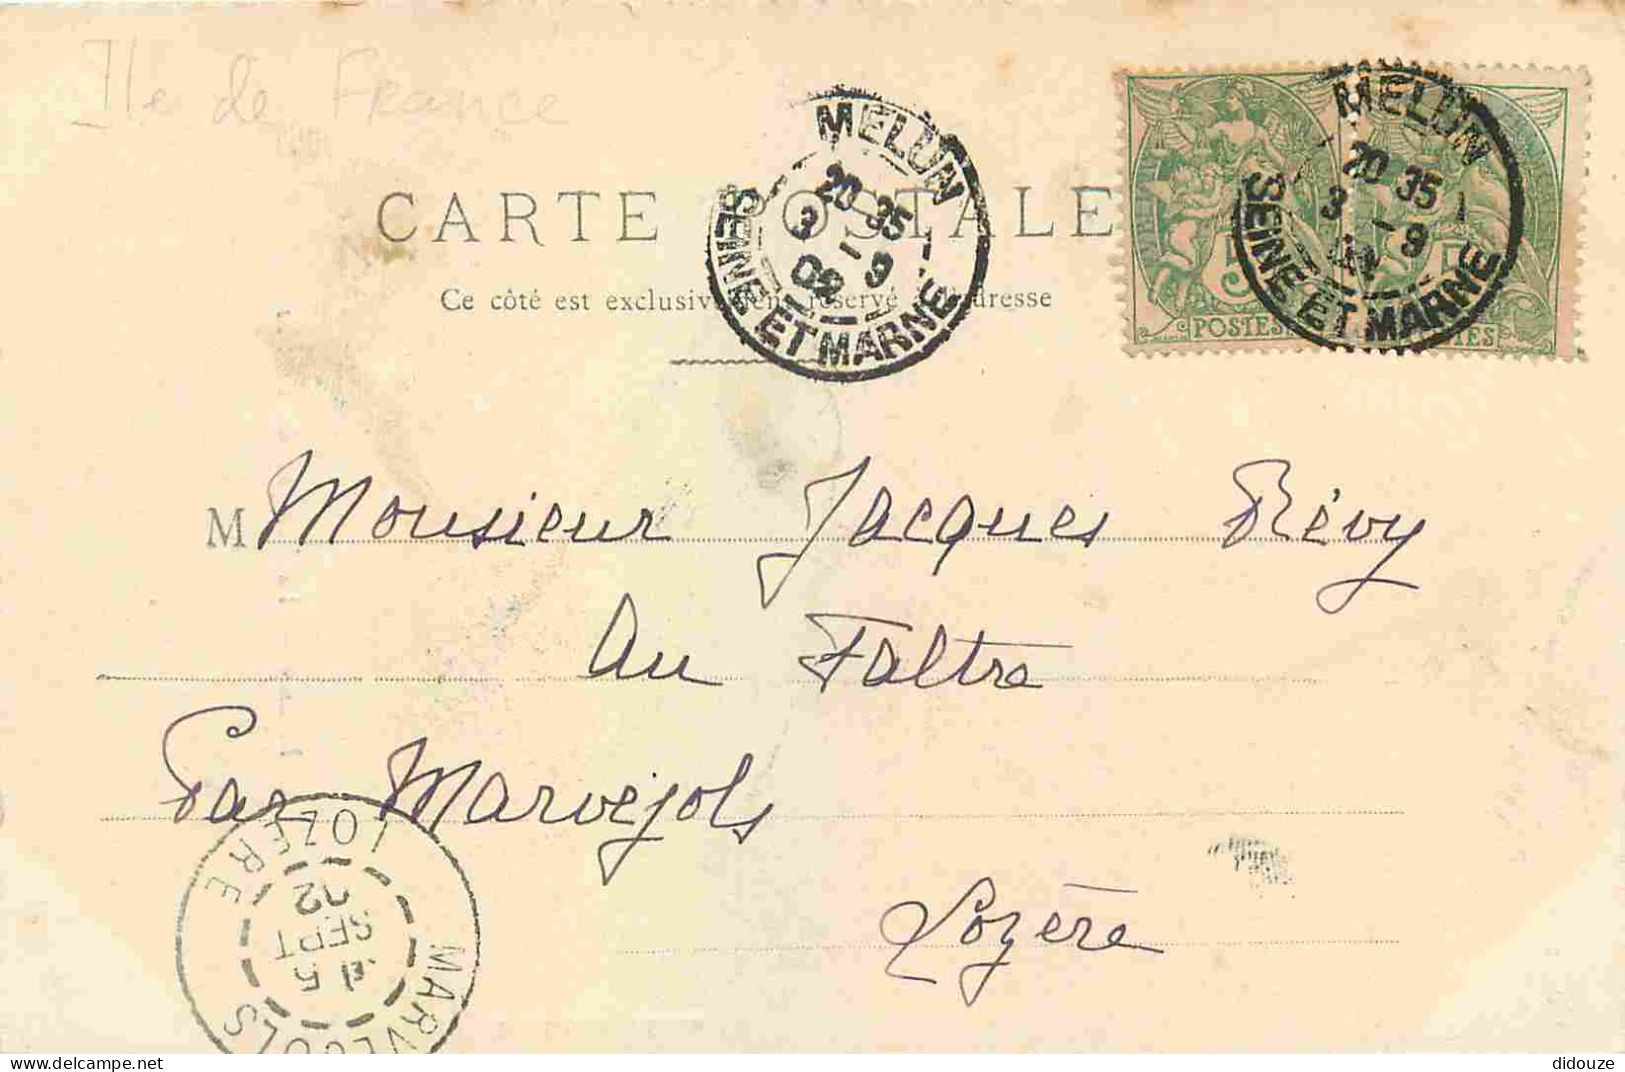 Ile de France
CARTE POSTALE
Ce côté est exclusivement réservé à l'adresse
MELUN
20 35
3 - 9
02
SEINE ET MARNE
MELUN
20 35
3 - 9
SEINE ET MARNE
5
POSTES
M Monsieur Jacques Révy
Au Faltre
Par Marvejols
Lozère
MARVEJOLS
5
SEPT
02
LOZERE
delcampe.net
didouze